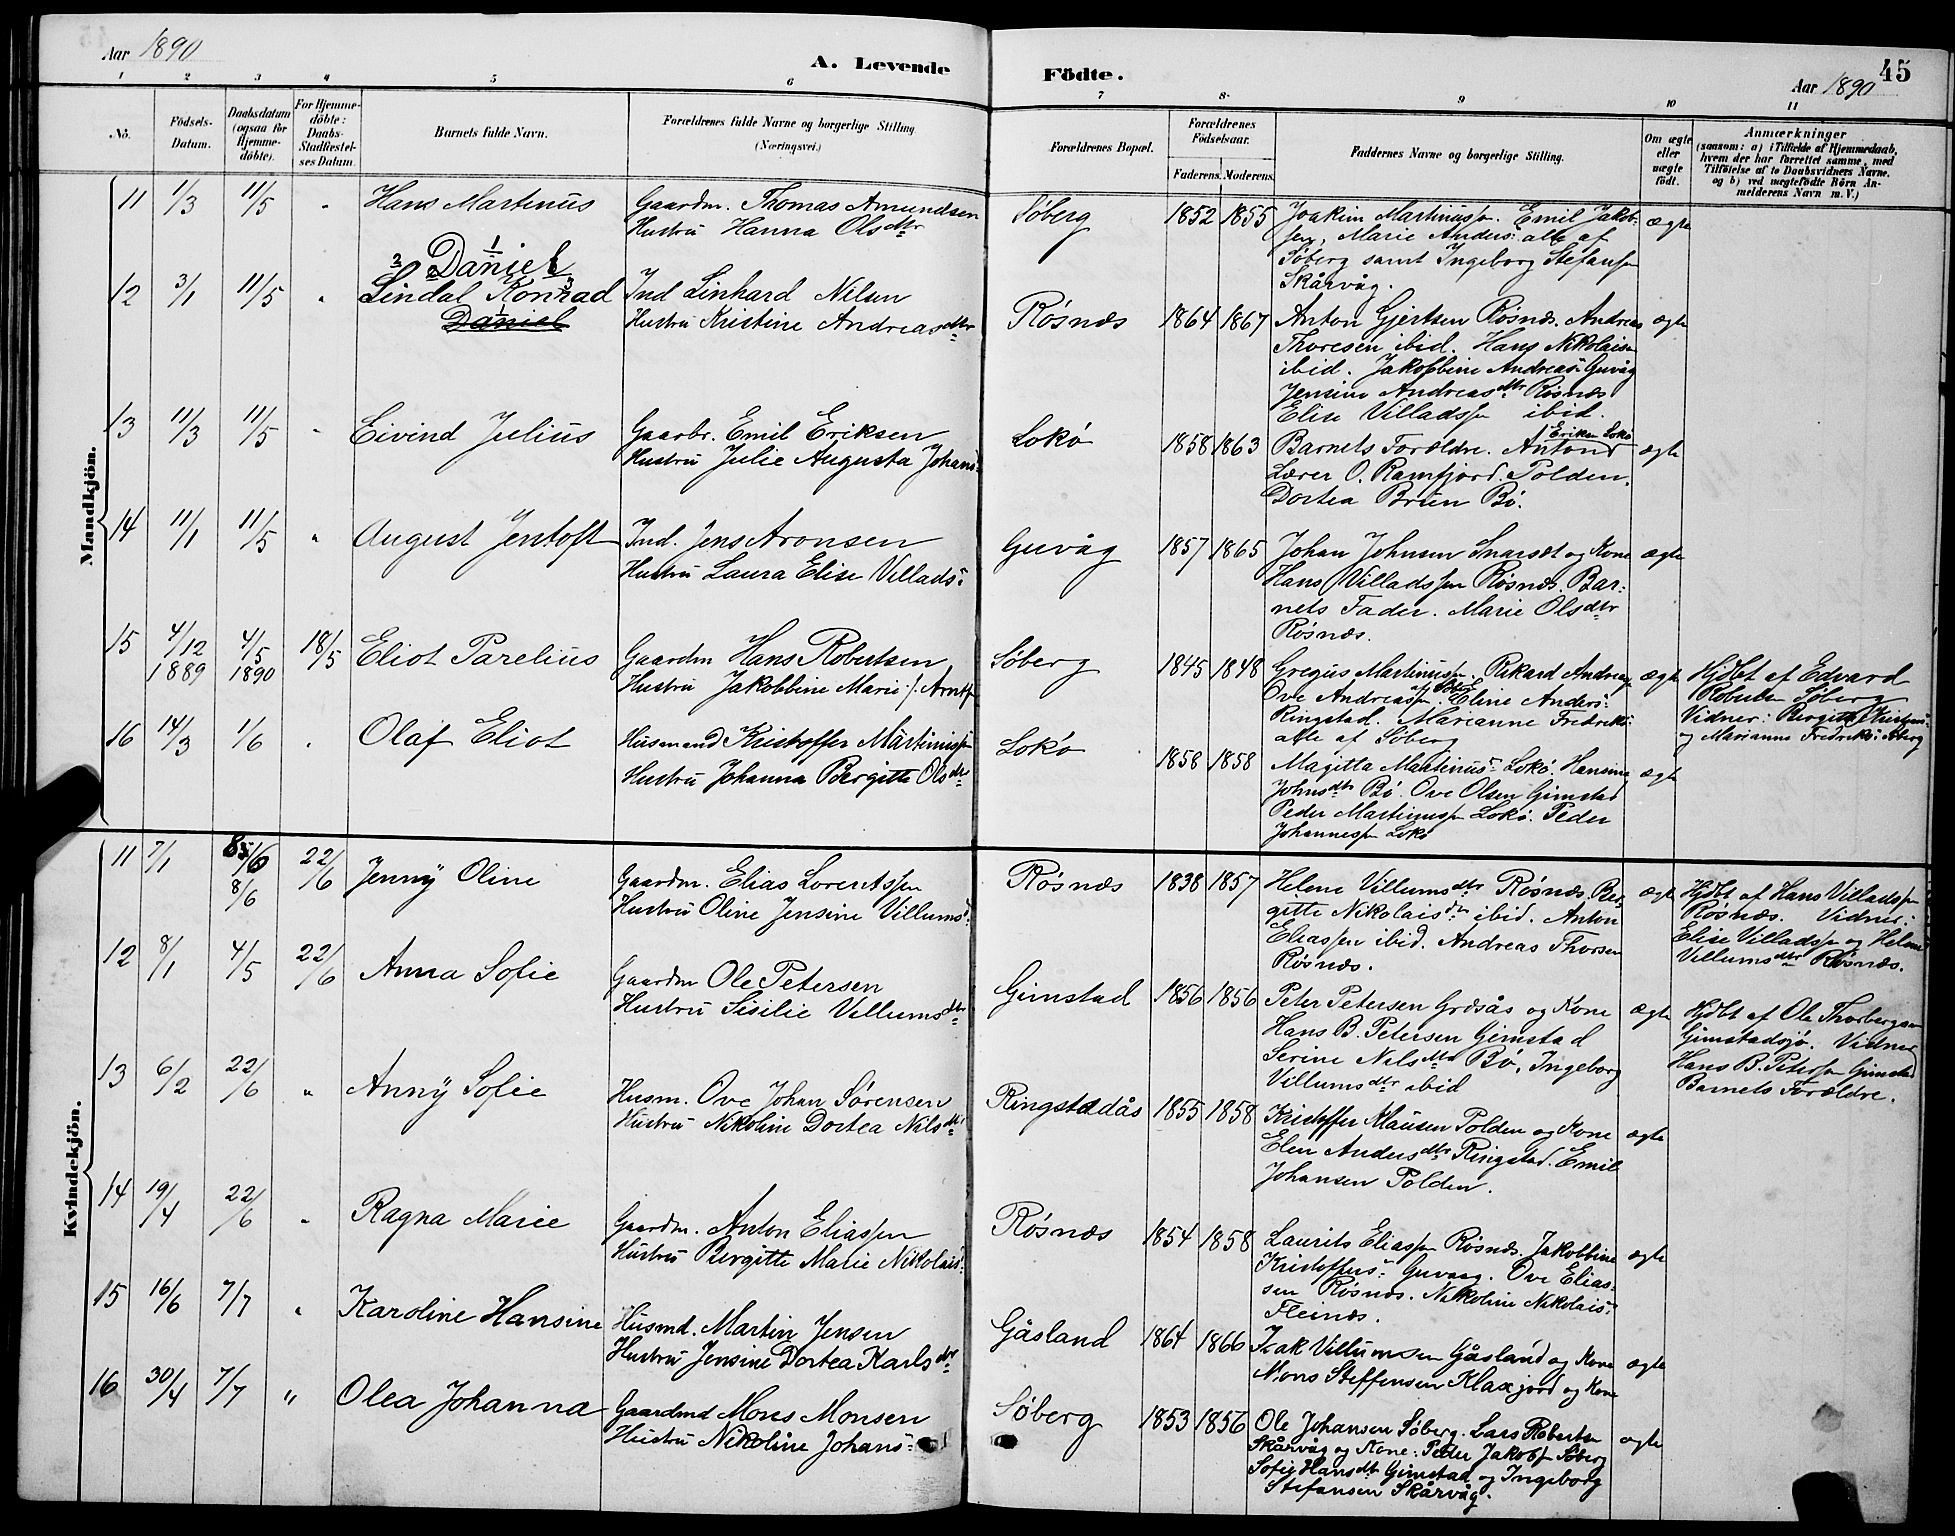 Aar 1890
A. Levende Födte.
Aar 1890
45
1 2 3 4 5 6 7 8 9 10 11
No.
Födsels-
Datum.
Daabsdatum
(ogsaa for
Hjemme-
döbte).
For Hjemme-
döbte:
Daabs-
Stadfæstel-
ses Datum.
Barnets fulde Navn.
Forældrenes fulde Navne og borgerlige Stilling
(Næringsvei.)
Forældrenes Bopæl.
Forældrenes
Födselsaar.
Faderens. Moderens.
Faddernes Navne og borgerlige Stilling.
Om ægte
eller
uægte
födt.
Anmærkninger
(saasom: a) i Tilfælde af Hjemmedaab,
hvem der har forrettet samme, med
Tilföielse af to Daabsvidners Navne.
og b) ved uægtefödte Börn An-
melderens Navn m. V.)
Mandkjön.
11 1/3 11/5 " Hans Martinus
Gaardm. Thomas Amundsen
Hustru Hanna Olsdtr
Søberg 1852 1855
Joakim Martinuss. Emil Jakob-
sen, Marie Anders: alle af
Søberg samt Ingeborg Stefansen
Skårvåg.
ægte
12 3/1 11/5 "
1
Daniel
2 3
Lindal Konrad
Daniel
Ind Linhard Nilsen
Hustru Kristine Andreasdtr
Røsnæs 1864 1867
Anton Gjertsen Røsnæs. Andreas
Thoresen ibid. Hans Nikolaisen
ibid. Jakobbine Andreas: Guvåg
Jensine Andreasdtr Røsnæs
Elise Villadss ibid.
ægte
13 11/3 11/5 " Eivind Julius
Gaarbr. Emil Eriksen
Hustru Julie Augusta Johans:
Lokø 1858 1863
Eriksen Lokø
Barnets Forældre. Anton
Lærer O. Ramfjord. Polden.
Dortea Brun Bø.
ægte
14 11/1 11/5 " August Jentoft
Ind. Jens Aronsen
Hustru Laura Elise Villads:
Guvåg 1857 1865
Johan Johnsen Snarset og Kone
Hans Villadssen Røsnæs. Bar-
nets Fader. Marie Olsdtr
Røsnæs.
ægte
15 4/12 1889 4/5 1890 18/5 Eliot Parelius
Gaardm Hans Robertsen
Hustru Jakobbine Marie f. Arnts
Søberg 1845 1848
Gregus Martinus. Rikard Andreas
Ove Andreass. af Søberg Eline Anders:
Ringstad. Marianne Fredriks:
alle af Søberg
ægte
Hjdbt af Edvard
Robertsen Søberg
Vidner: Bergitte Kristens:
og Marianne Fredriks: Søberg
16 14/3 1/6 " Olaf Eliot
Husmand Kristoffer Martinuss
Hustru Johanna Bergitte Olsdtr
Lokø 1858 1858
Magitta Martinus: Lokø. Hansina
Johnsdtr Bø. Ove Olsen Gimstad
Peder Martinuss Lokø. Peder
Johannessen Lokø
ægte
Kvindekjön.
11 7/1 8/6 22/6 Jenny Oline
Gaardm. Elias Lorentssen
Hustru Oline Jensine Villumsd:
Røsnæs 1838 1857
Helene Villumsdtr Røsnæs. Ber-
gitte Nikolaisdtr ibid. Anton
Eliassen ibid. Andreas Thorsen
Røsnæs.
ægte
Hjdbt af Hans Villadssen
Røsnæs. Vidner:
Elise Villadss og Helene
Villumsdtr Røsnæs.
12 8/1 4/5 22/6 Anna Sofie
Gaardm Ole Petersen
Hustru Sisilie Villumsdtr
Gimstad 1856 1856
Peter Petersen Grøsås og Kone
Hans B. Petersen Gimstad
Serine Nilsdtr Bø, Ingeborg
Villumsdtr ibid
ægte
Hjdbt af Ole Thorbergsen
Gimstadsjø. Vidner
Hans B. Peterss Gimstad
Barnets Forældre.
13 6/2 22/6 " Anny Sofie
Husm. Ove Johan Sørensen
Hustru Nikoline Dortea Nilsdtr
Ringstadås 1855 1858
Kristoffer Mausen Polden og Kone
Elen Andersdtr Ringstad. Emil
Johansen Polden.
ægte
14 19/4 22/6 " Ragna Marie
Gaardm. Anton Eliassen
Hustru Bergitte Marie Nikolaisd:
Røsnæs 1854 1858
Laurits Eliassen Røsnæs. Jakobbine
Kristoffers: Guvaag. Ove Elias-
sen Røsnæs. Nikoline Nikolais:
Fleinæs.
ægte
15 16/6 7/7 " Karoline Hansine
Husmd. Martin Jensen
Hustru Jensine Dortea Karlsdtr
Gåsland 1864 1866
Isak Villumsen Gåsland og Kone
Mons Steffensen Klaxjord og Kone
ægte
16 30/4 7/7 " Olea Johanna
Gaardmd Mons Monsen
Hustru Nikoline Johans:
Søberg 1853 1856
Ole Johansen Søberg. Lars Robertsen
Skårvåg og Kone: Peder Jakobs Søberg
Sofie Hansdtr Gimstad og Ingeborg
Stefansen Skårvåg.
ægte